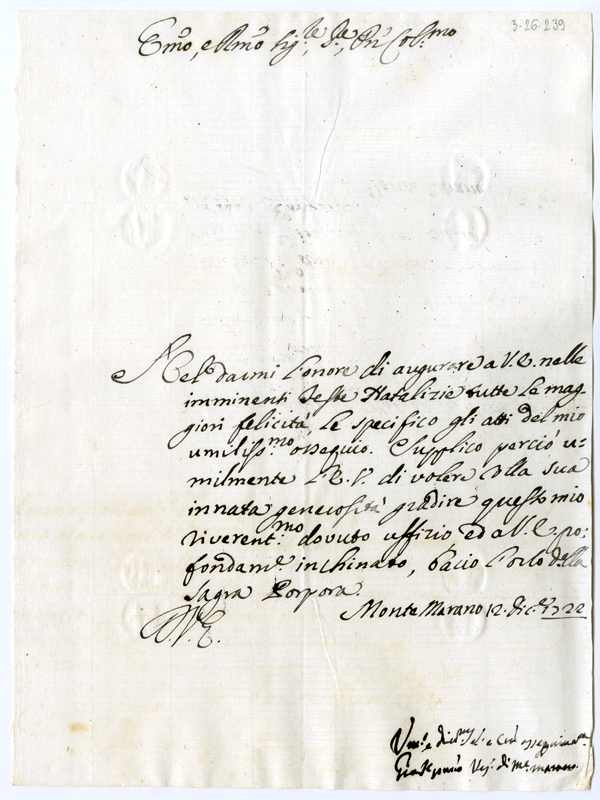 3-26-239
Emo, e Rmo Sig.re, Sre, Prn Col.mo
Nel darmi l'onore di augurare a V. E. nelle
imminenti Feste Natalizie tutte le mag-
giori felicità, le specifico gli atti del mio
umiliss.mo ossequio. Supplico perciò u=
milmente l'E. V. di volere colla sua
innata generosità gradire questo mio
riverent.mo dovuto uffizio ed a V. E. pro:
fondam.e inchinato, bacio l'orlo della
Sagra Porpora.
Monte Marano 12. Dic.e 1722
D. V. E.
Um.o e
Vesc. di Me Marano.